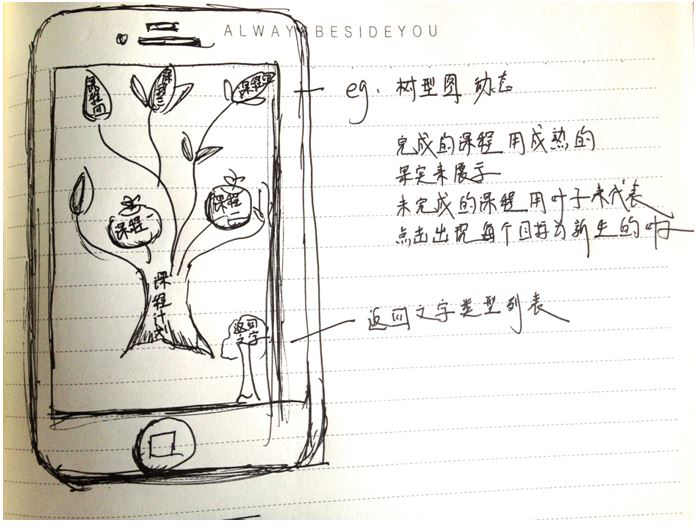 ALWAYSBESIDEYOU
课程四
课程三
课程五
课程一
课程二
课程计划
返回
文字
eg. 树型图 动态
完成的课程用成熟的
果实来展示
未完成的课程用叶子来代表
点击出现每个目标为新生的叶子
返回文字类型列表